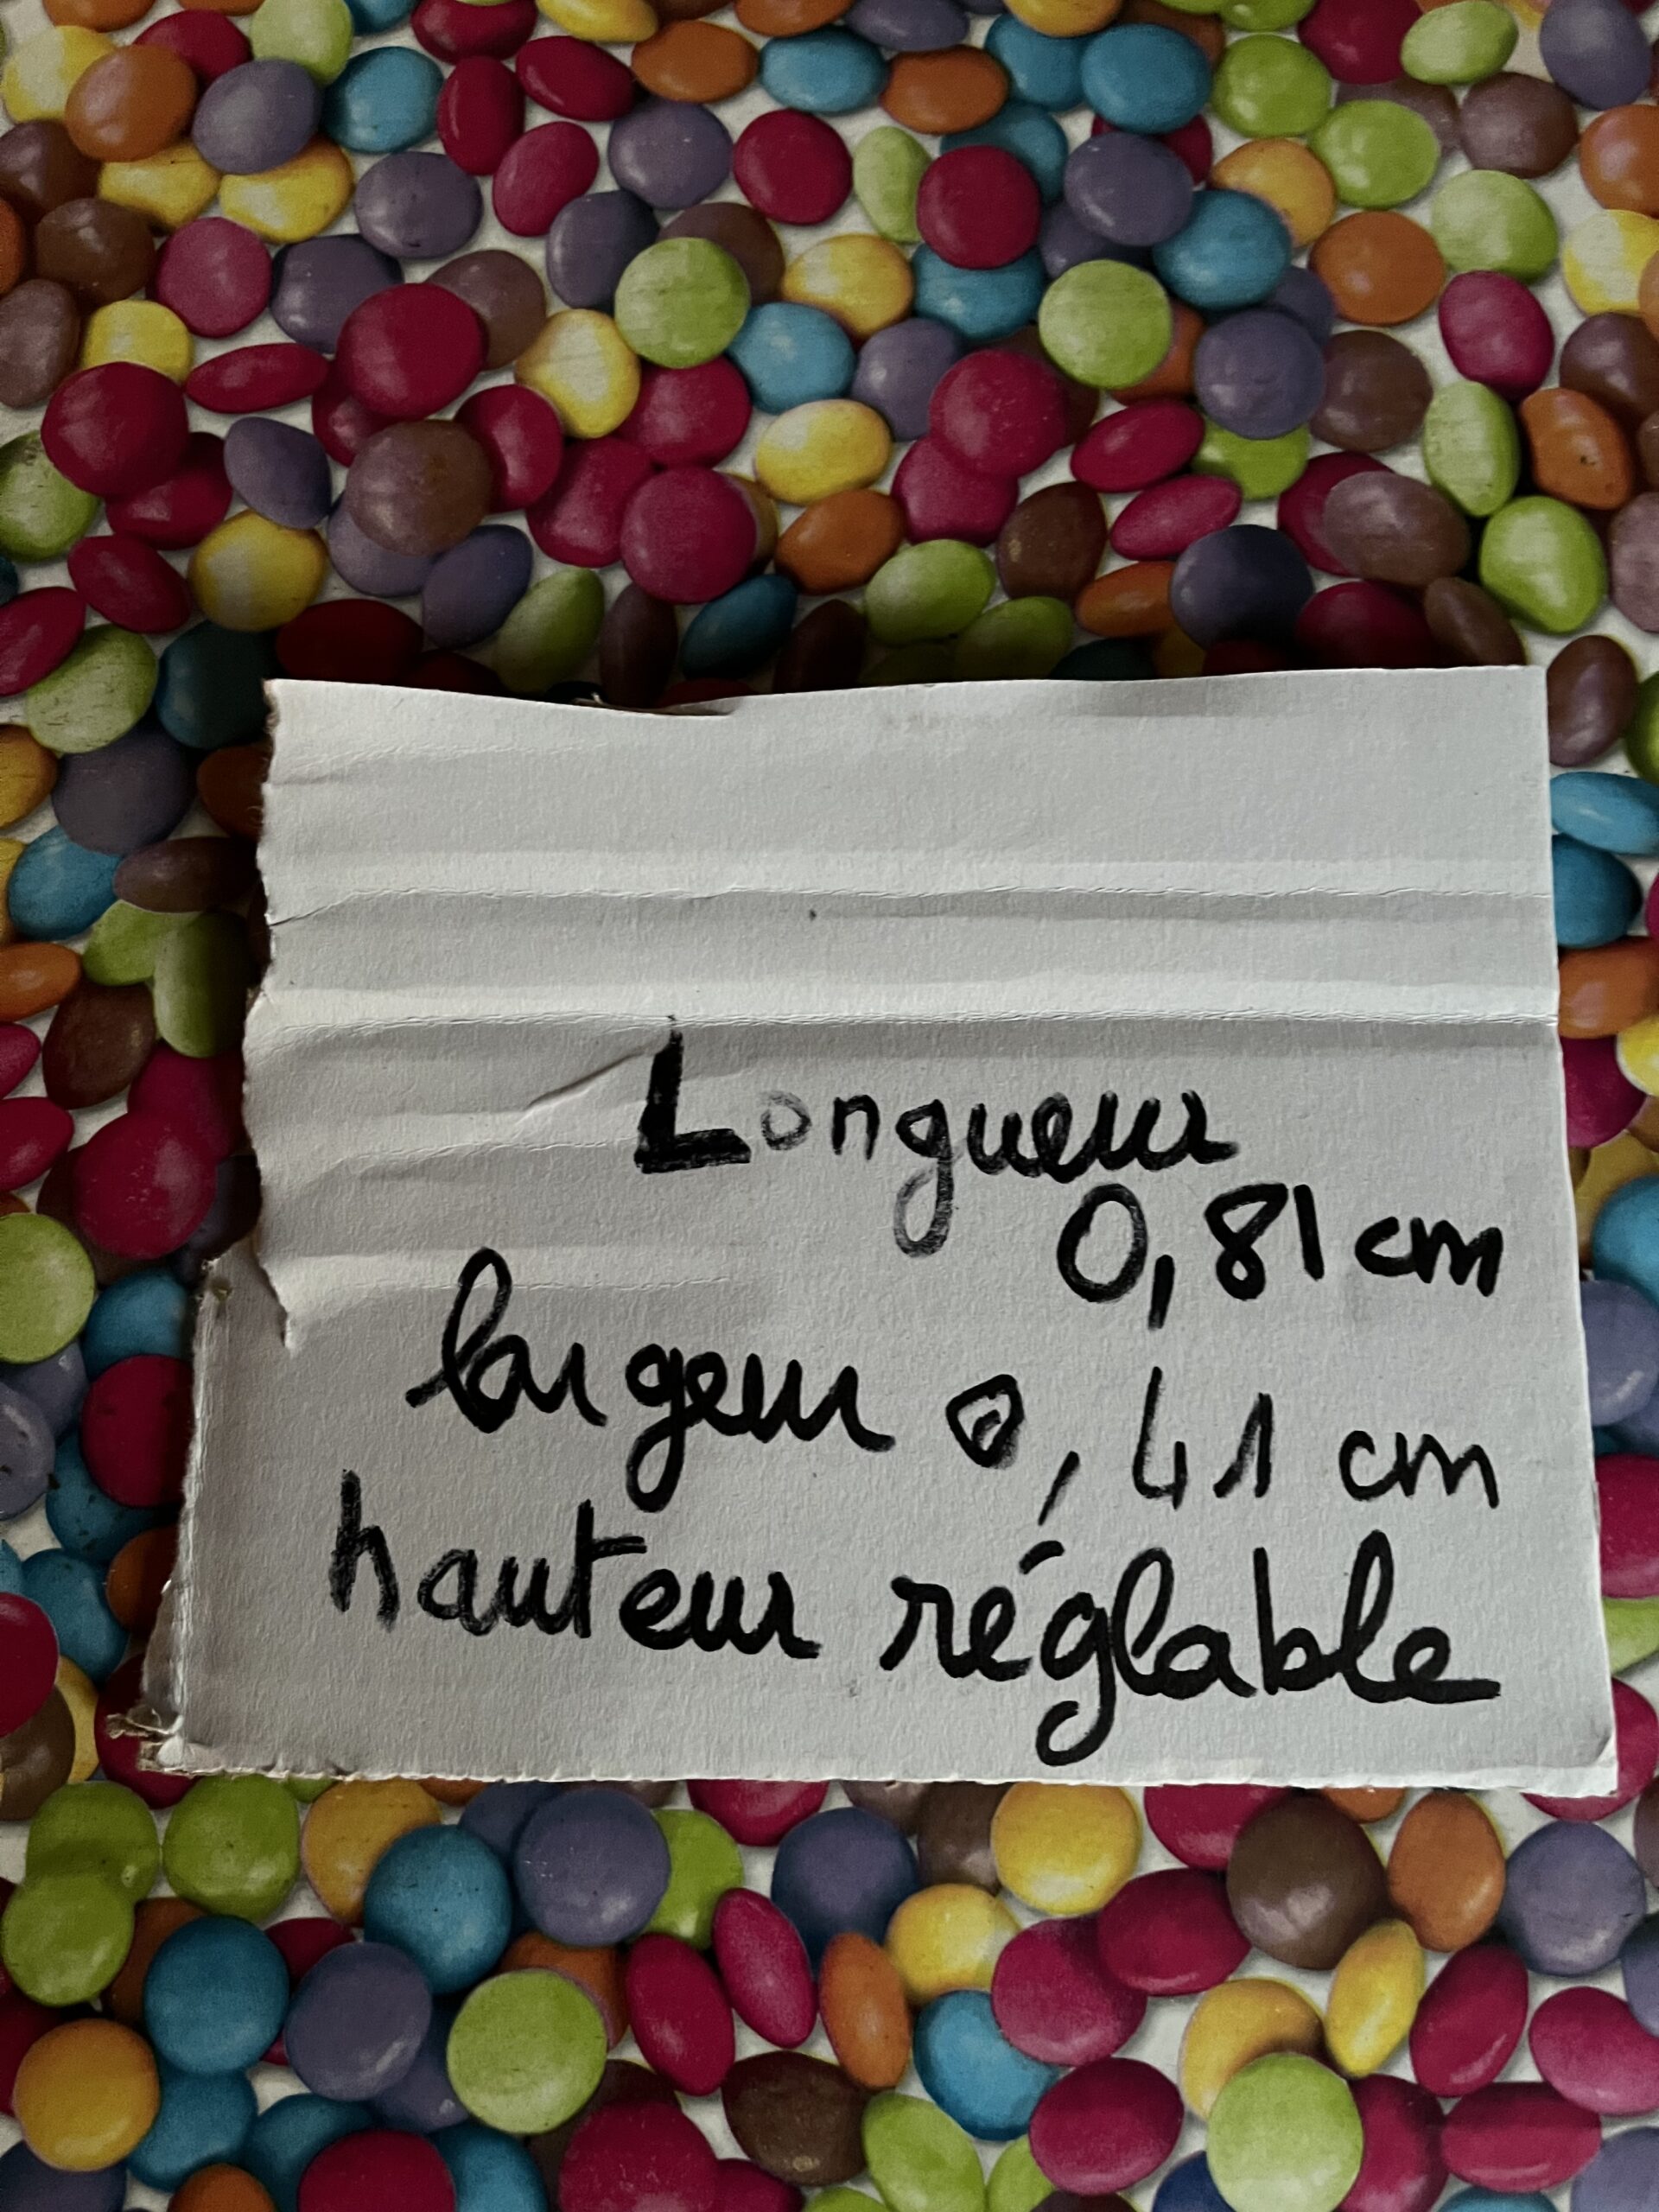 Longueur
0,81 cm
largeur 0,41 cm
hauteur réglable